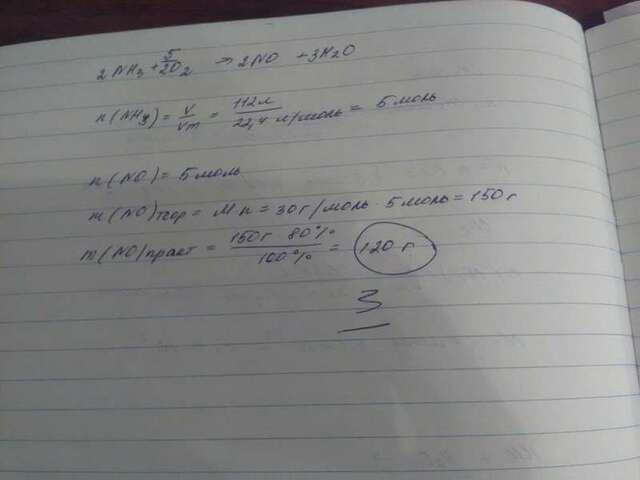 2NH3 + 5/2O2 → 2NO + 3H2O
n(NH3) = V/Vm = 112л/22,4 л/моль = 5 моль
n(NO) = 5 моль
m(NO)теор = M n = 30 г/моль 5 моль = 150 г
m(NO)практ = 150г 80%/100% = 120 г
3